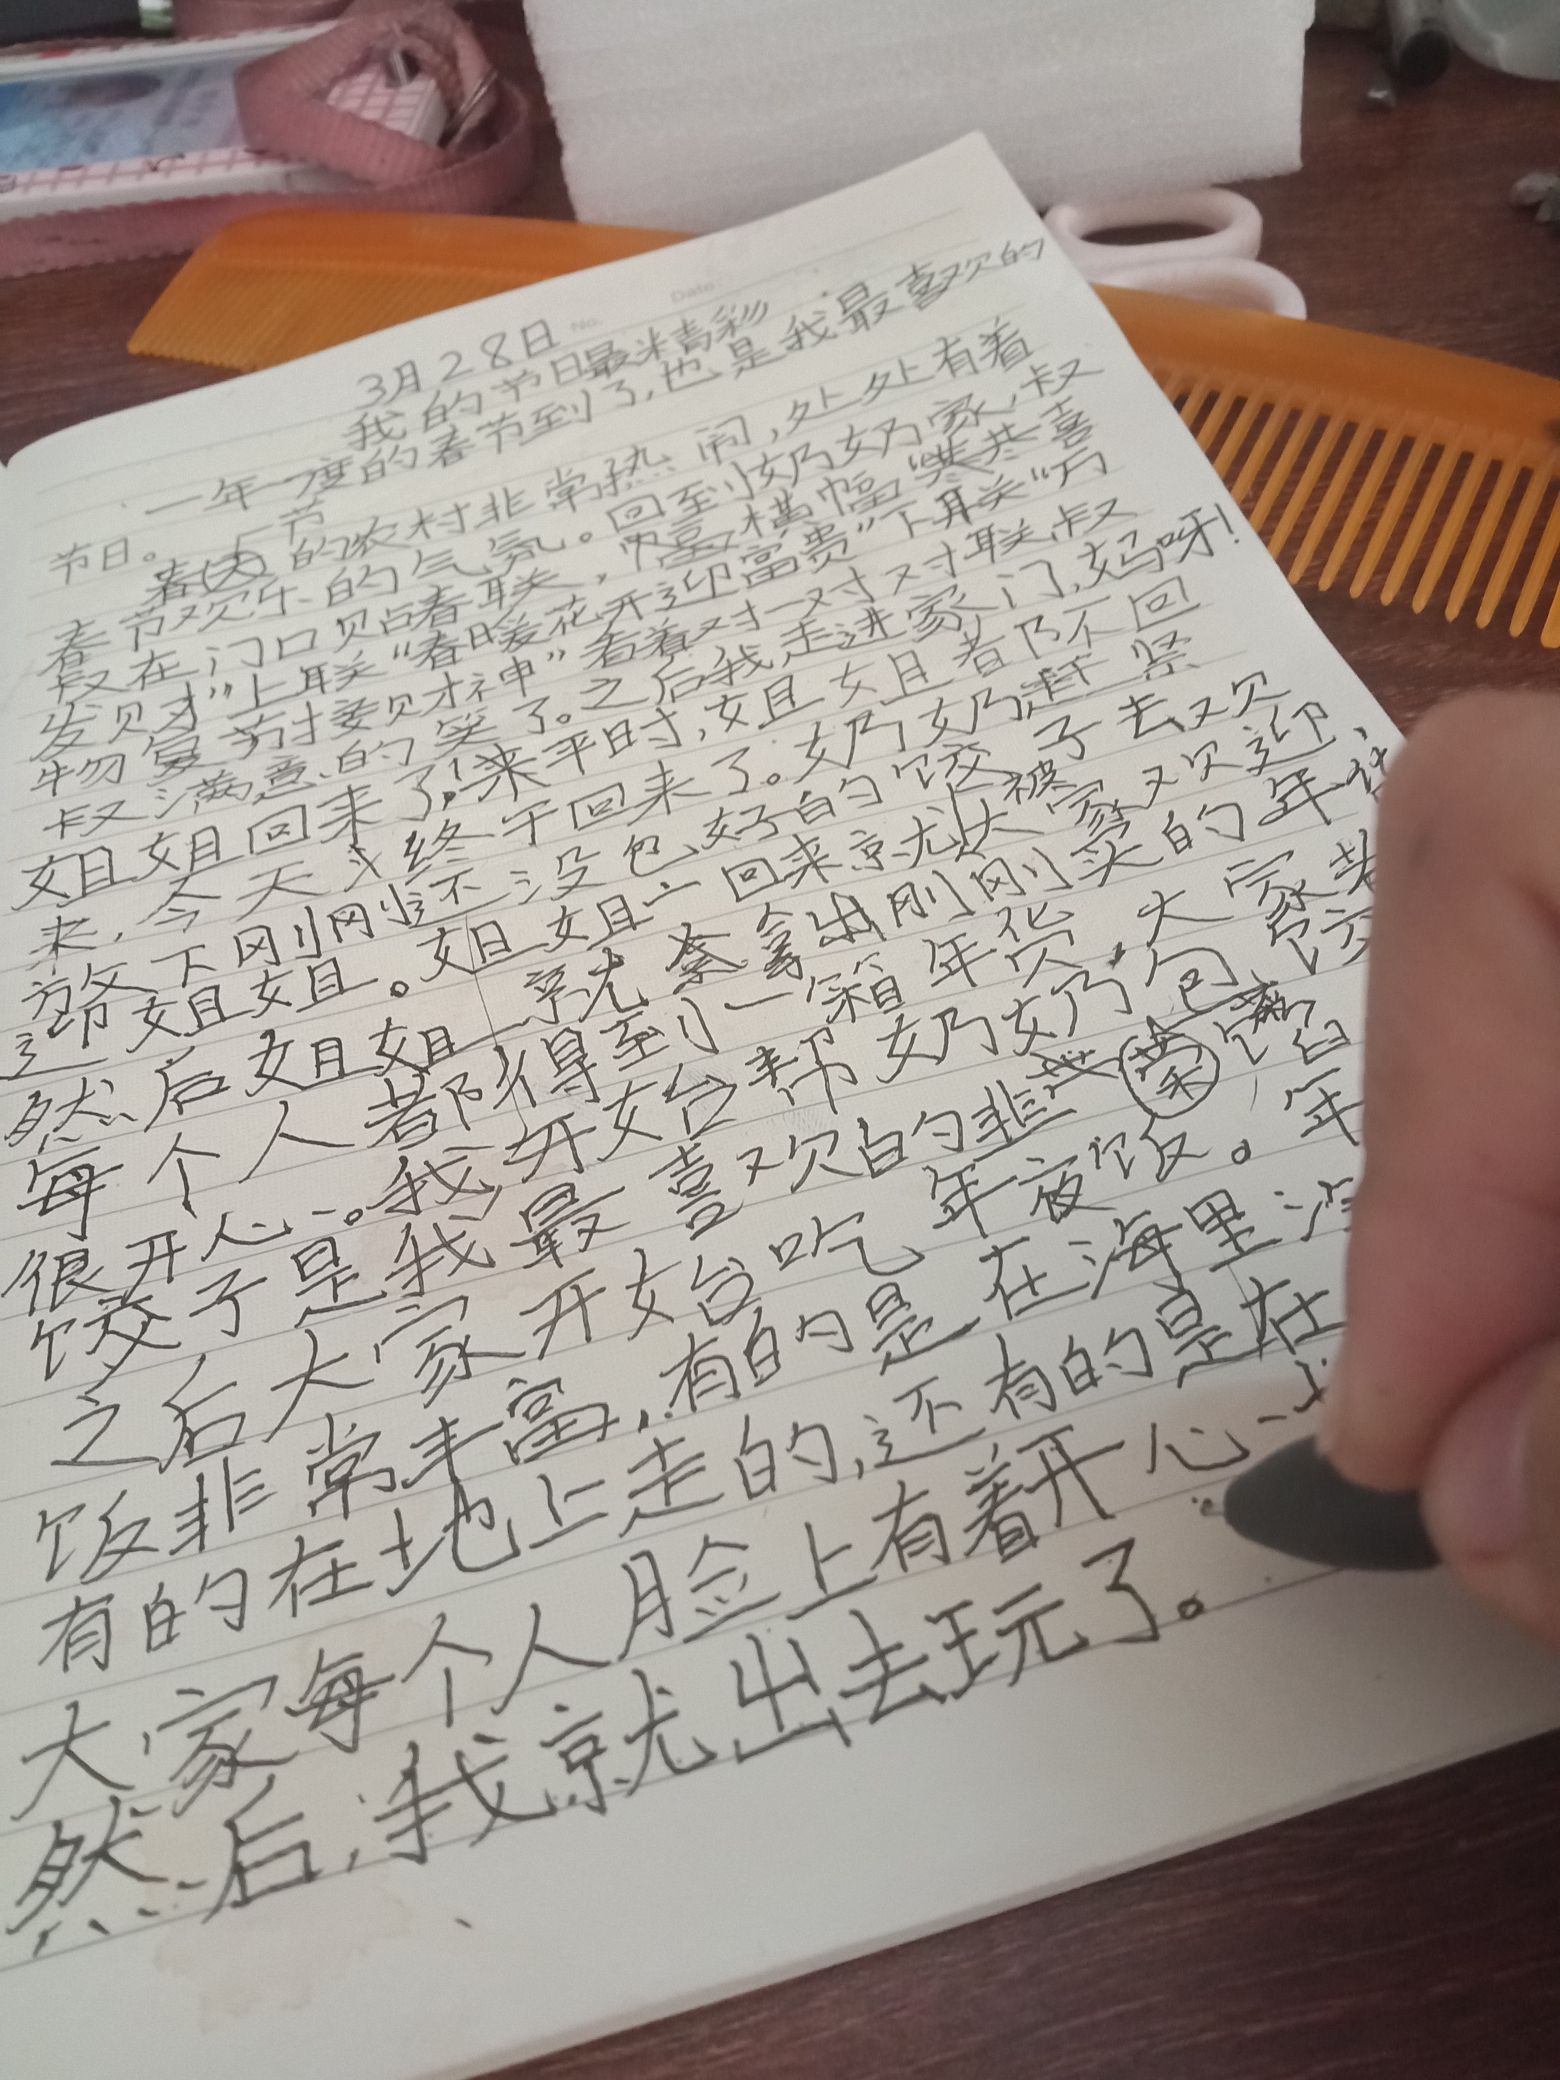 No.
Date:
3月28日
我的节日最精彩
一年一度的春节到了,也是我最喜欢的
节日。
节
春天的农村非常热闹,处处有着
春节欢乐的气氛。回到奶奶家,叔
叔在门口贴春联,横幅“恭喜
发财”上联“春暖花开迎富贵”下联“万
物复苏接财神”看着对一对对联叔
叔满意的笑了。之后我走进家门,妈呀!
姐姐回来了!平时,姐姐都不回
来,今天终于回来了。奶奶赶紧
放下刚刚还没包好的饺子去欢
迎姐姐。姐姐一回来就被大家欢迎,
然后姐姐就拿出刚刚买的年货
每个人都得到一箱年货,大家都
很开心。我开始帮奶奶包饺
饺子是我最喜欢的韭菜馅
之后大家开始吃年夜饭。年
饭非常丰富,有的是在海里
有的在地上走的,还有的是在
大家每个人脸上有着开心
然后,我就出去玩了。